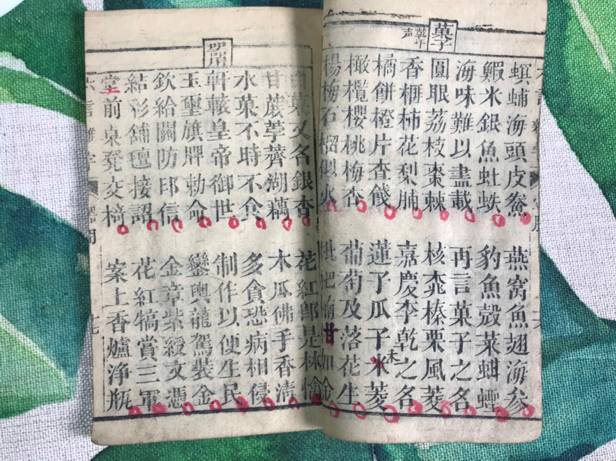 螟蜅海頭皮鮝
燕窩魚翅海參
鰕米銀魚
豹魚殼菜蚶蟶
海味難以盡載
再言菓子之名
菓子
圓眼荔枝棗棘
核桃榛栗風菱
香榧柿花梨脯
嘉慶李乾之名
橘餅橙片查餞
蓮子瓜子米菱
橄欖櫻桃梅杏
葡萄及落花生
楊梅石榴似火
枇杷甘如金
白菓又名銀杏
花紅郎是林檎
甘蔗荸薺湖藕
木瓜佛手香清
水菓不時不食
多貪恐病相侵
器用
軒轅皇帝御世
制作以便生民
玉璽旗牌勅命
鑾輿龍駕裝金
欽給關防印信
金章紫綬文憑
結彩鋪氊接詔
花紅犒賞三軍
堂前桌凳交椅
案上香爐淨瓶
六言雜字